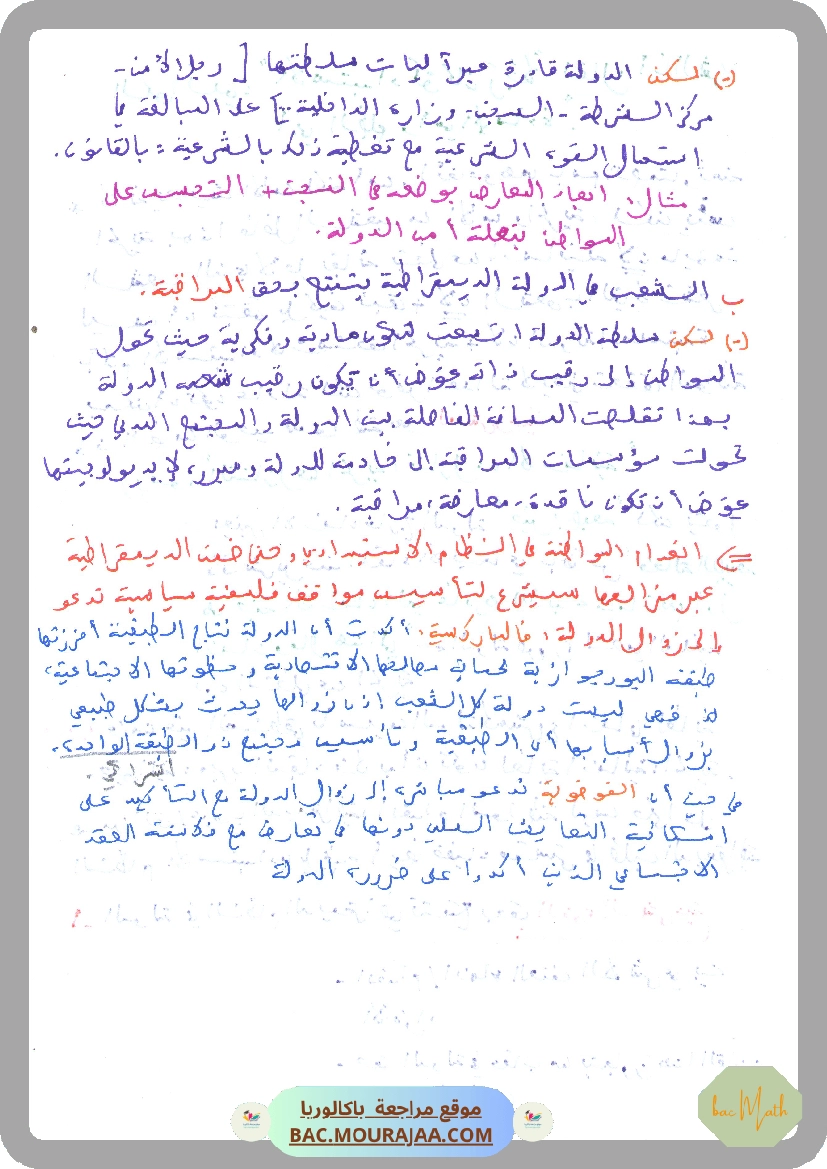 (-) لكن الدولة قادرة عبر آليات سلطتها [ رجل الأمن -
مركز الشرطة - السجن - وزارة الداخلية ...] على المبالغة في
استعمال القوة الشرعية مع تغطية ذلك بالشرعية = بالقانون.
مثال: إجبار المعارض بوضعه في السجن + التجسس على
المواطن بتعلة أمن الدولة.
ب الشعب في الدولة الديمقراطية يتمتع بحق المراقبة.
(-) لكن سلطة الدولة اتسعت لتكون مادية وفكرية حيث تحول
المواطن إلى رقيب ذاته عوض أن يكون رقيب الدولة
بهذا تقلصت المسافة الفاصلة بين الدولة والمجتمع المدني حيث
تحولت مؤسسات المراقبة إلى خادمة للدولة ومبررة لإيديولوجيتها
عوض أن تكون ناقدة، معارضة، مراقبة.
<= انعدام المواطنة في النظام الاستبدادي وحتى ضمن الديمقراطية
عبر مزالقها سيشرع لتأسيس مواقف فلسفية سياسية تدعو
إلى زوال الدولة: فالماركسية: أكدت أن الدولة نتاج الطبقية أفرزتها
طبقة البورجوازية لحماية مصالحها الاقتصادية وحظوتها الاجتماعية،
لذا فهي ليست دولة كل الشعب إذن زوالها يحدث بشكل طبيعي
بزوال أسبابها أي الطبقية وتأسيس مجتمع ذو الطبقة الواحدة.
اشتراكي.
في حين أن الفوضوية تدعو مباشرة إلى زوال الدولة مع التأكيد على
إمكانية التعايش السلمي دونها في تعارض مع فلاسفة العقد
الاجتماعي الذين أكدوا على ضرورة الدولة
موقع مراجعة باكالوريا
BAC.MOURAJAA.COM
bac Math